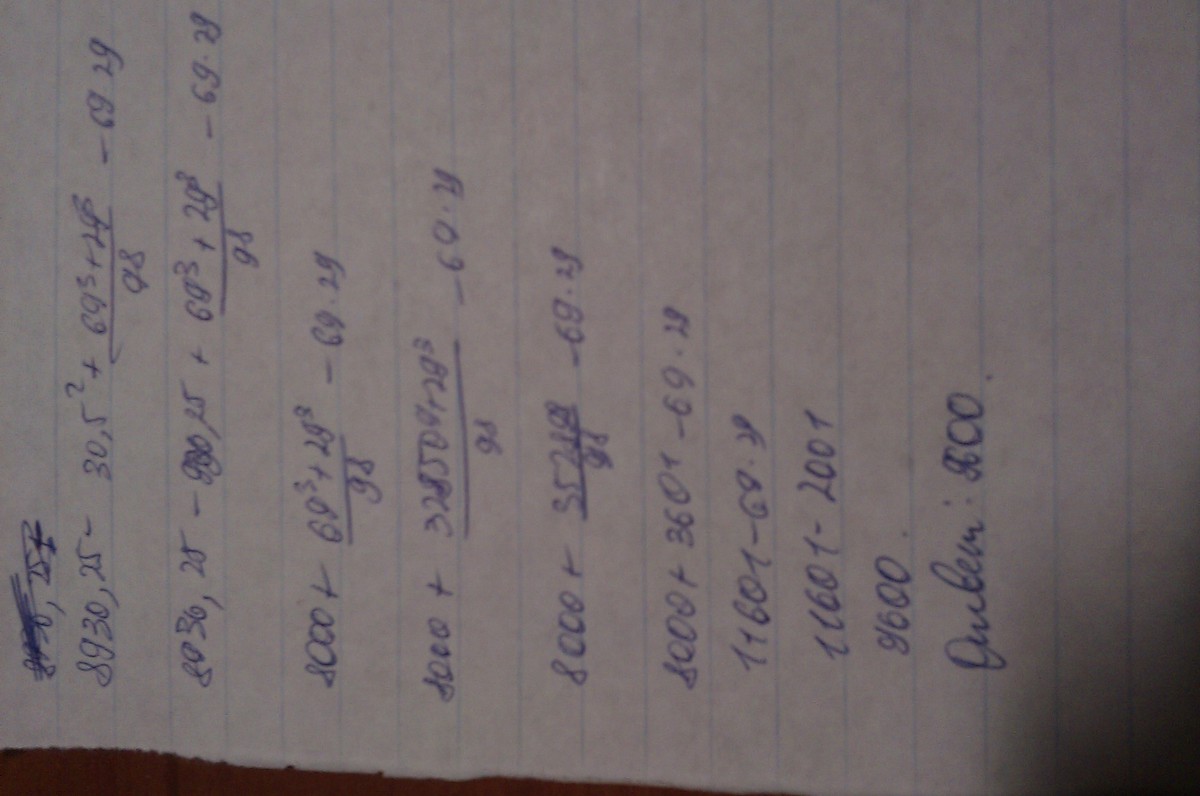 8930,25 - 30,5² + (69³+29³)/98 - 69 29
8930,25 - 930,25 + (69³+29³)/98 - 69·29
8000 + (69³+29³)/98 - 69·29
8000 + (328509+29³)/98 - 69·29
8000 + /98 - 69·29
8000 + 3601 - 69·29
11601 - 69·29
11601 - 2001
9600.
Ответ: 9600.